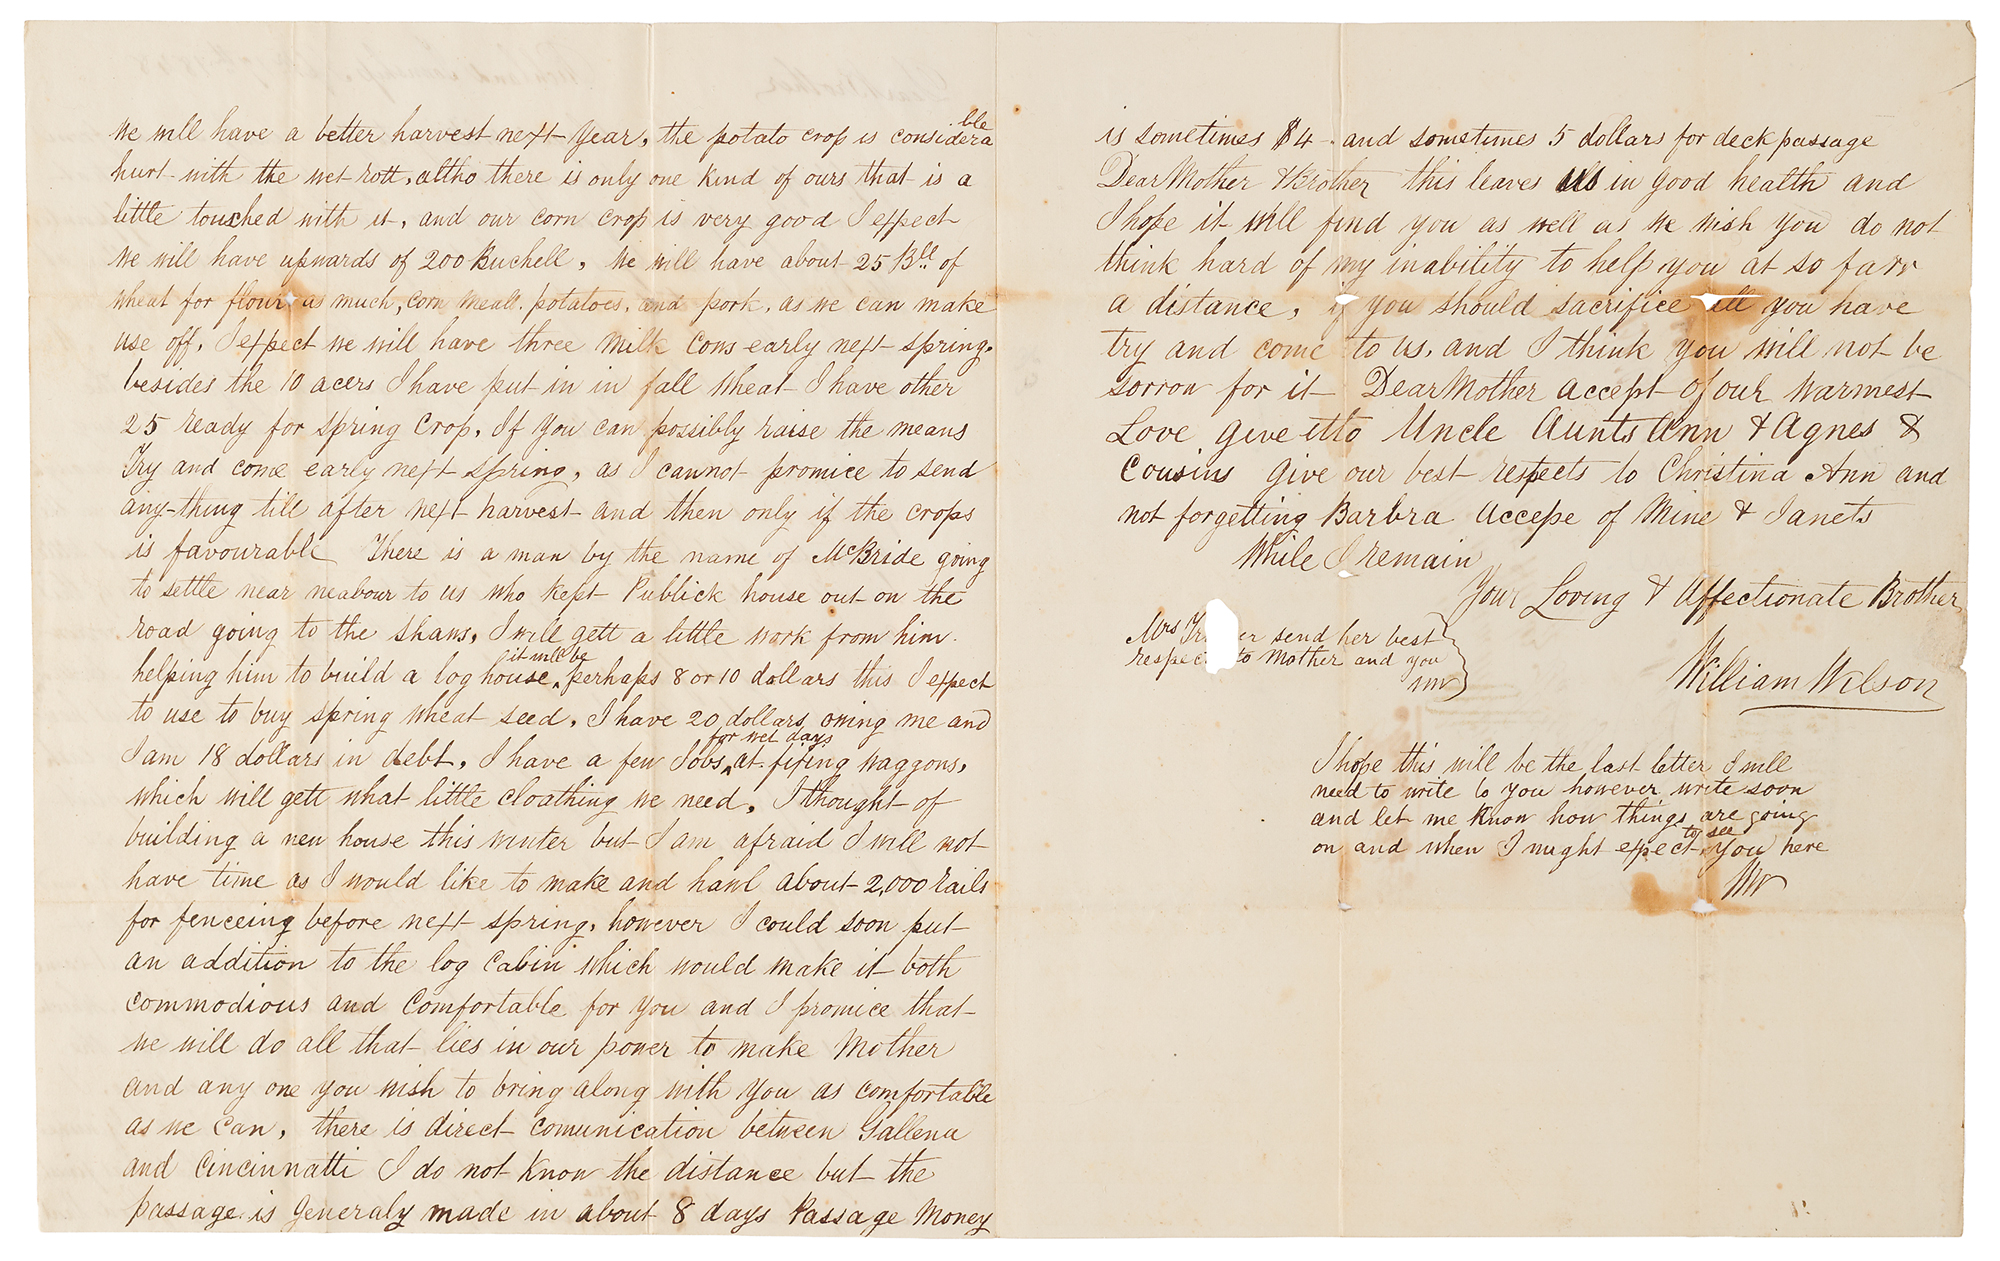 we will have a better harvest next year, the potato crop is considerable
hurt with the wet rott, altho there is only one kind of ours that is a
little touched with it, and our corn crop is very good I expect
we will have upwards of 200 Buchell, we will have about 25 Bll of
wheat for flour as much, corn meall, potatoes, and pork, as we can make
use off, I expect we will have three milk cows early next spring,
besides the 10 acers I have put in in fall wheat I have other
25 ready for spring crop, If you can possibly raise the means
Try and come early next spring, as I cannot promice to send
any-thing till after next harvest and then only if the crops
is favourable There is a man by the name of McBride going
to settle near neabour to us who kept Publick house out on the
road going to the shaws, I will gett a little work from him
helping him to build a log house, it will be perhaps 8 or 10 dollars this I expect
to use to buy spring wheat seed, I have 20 dollars owing me and
I am 18 dollars in debt, I have a few Jobs for wet days at fixing waggons,
which will gett what little cloathing we need, I thought of
building a new house this winter but I am afraid I will not
have time as I would like to make and hawl about 2,000 rails
for fenceing before next spring, however I could soon put
an addition to the log cabin which would make it both
commodious and comfortable for you and I promice that
we will do all that lies in our power to make Mother
and any one you wish to bring along with you as comfortable
as we can, there is direct comunication between Gallena
and cincinnatti I do not know the distance but the
passage is generaly made in about 8 days Passage Money
is sometimes $4 - and sometimes 5 dollars for deck passage
Dear Mother & Brother this leaves us in good health and
I hope it will find you as well as we wish you do not
think hard of my inability to help you at so farr
a distance, if you should sacrifice all you have
try and come to us, and I think you will not be
sorrow for it Dear Mother accept of our warmest
Love give itto Uncle Aunts Ann & Agnes &
Cousins give our best respects to Christina Ann and
not forgetting Barbra Accepe of Mine & Janets
While I remain
Your Loving & Affectionate Brother
William Wilson
Mrs send her best
respec to Mother and you
WW
I hope this will be the last letter I will
need to write to you however write soon
and let me know how things are going
on and when I might expect to see you here
WW